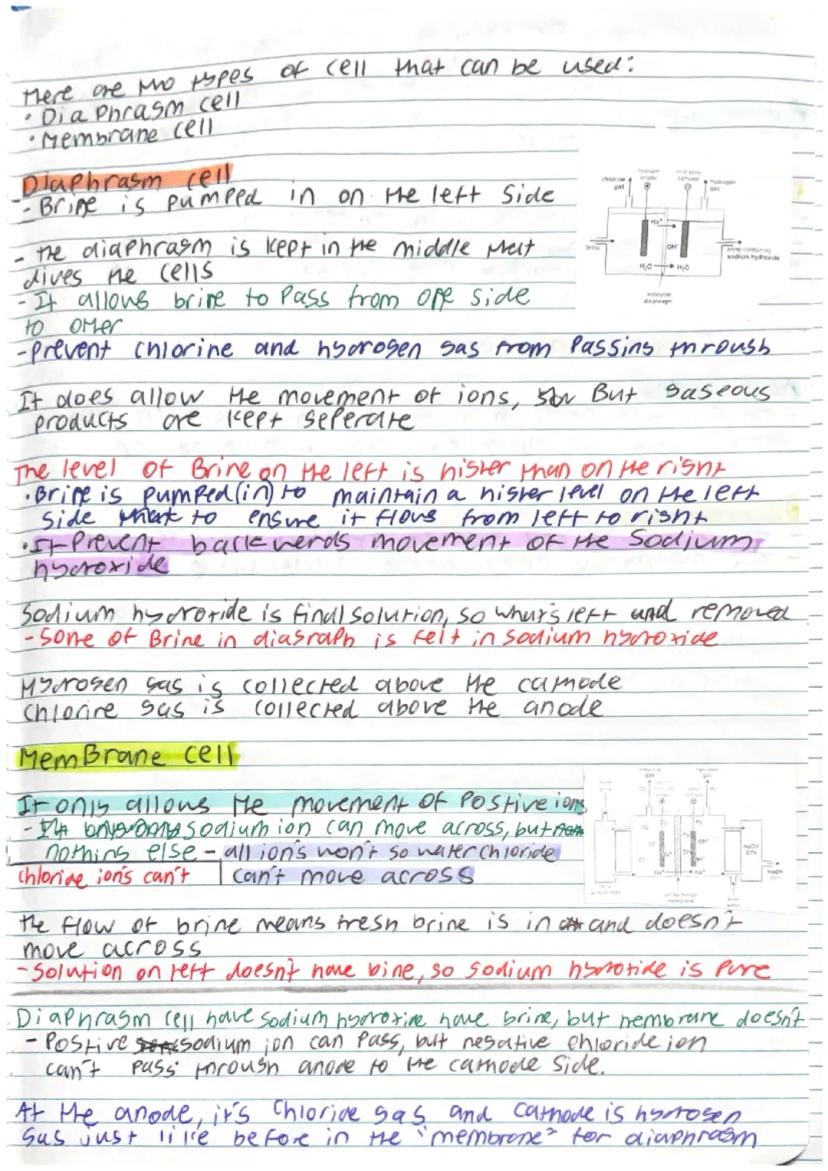 There are two types of cell that can be used:
• Diaphragm cell
• Membrane cell
Diaphragm cell
- Brine is pumped in on the left side
chlorine gas
hydrogen gas
Na⁺
OH⁻
H₂O → H₂O
brine
brine containing sodium hydroxide
- the diaphragm is kept in the middle that
dives the cells
- It allows brine to pass from one side
to other
- Prevent chlorine and hydrogen gas from passing through
It does allow the movement of ions, But gaseous
products are kept seperate
The level of Brine on the left is higher than on the right
• Brine is pumped (in) to maintain a higher level on the left
side to ensure it flows from left to right
• It Prevent backwerds movement of the Sodium
hydroxide
Sodium hydroxide is final solution, so what's left and removed
- some of Brine in diagraph is felt in sodium hydroxide
Hydrogen gas is collected above the cathode
Chlorine gas is collected above the anode
MemBrane cell
It only allows the movement of Postive ions
- sodium ion can move across, but
nothing else - all ion's won't so water chloride
chloride ion's can't | can't move across
the flow of brine means fresh brine is in and doesn't
move across
- Solution on left doesn't have bine, so sodium hydroxide is pure
Diaphragm cell have sodium hydroxide have brine, but membrane doesn't
- Postive sodium ion can pass, but negative chloride ion
can't pass through anode to the cathode side.
At the anode, it's Chloride gas and Cathode is hydrogen
gas just like before in the "membrane" for diaphragm